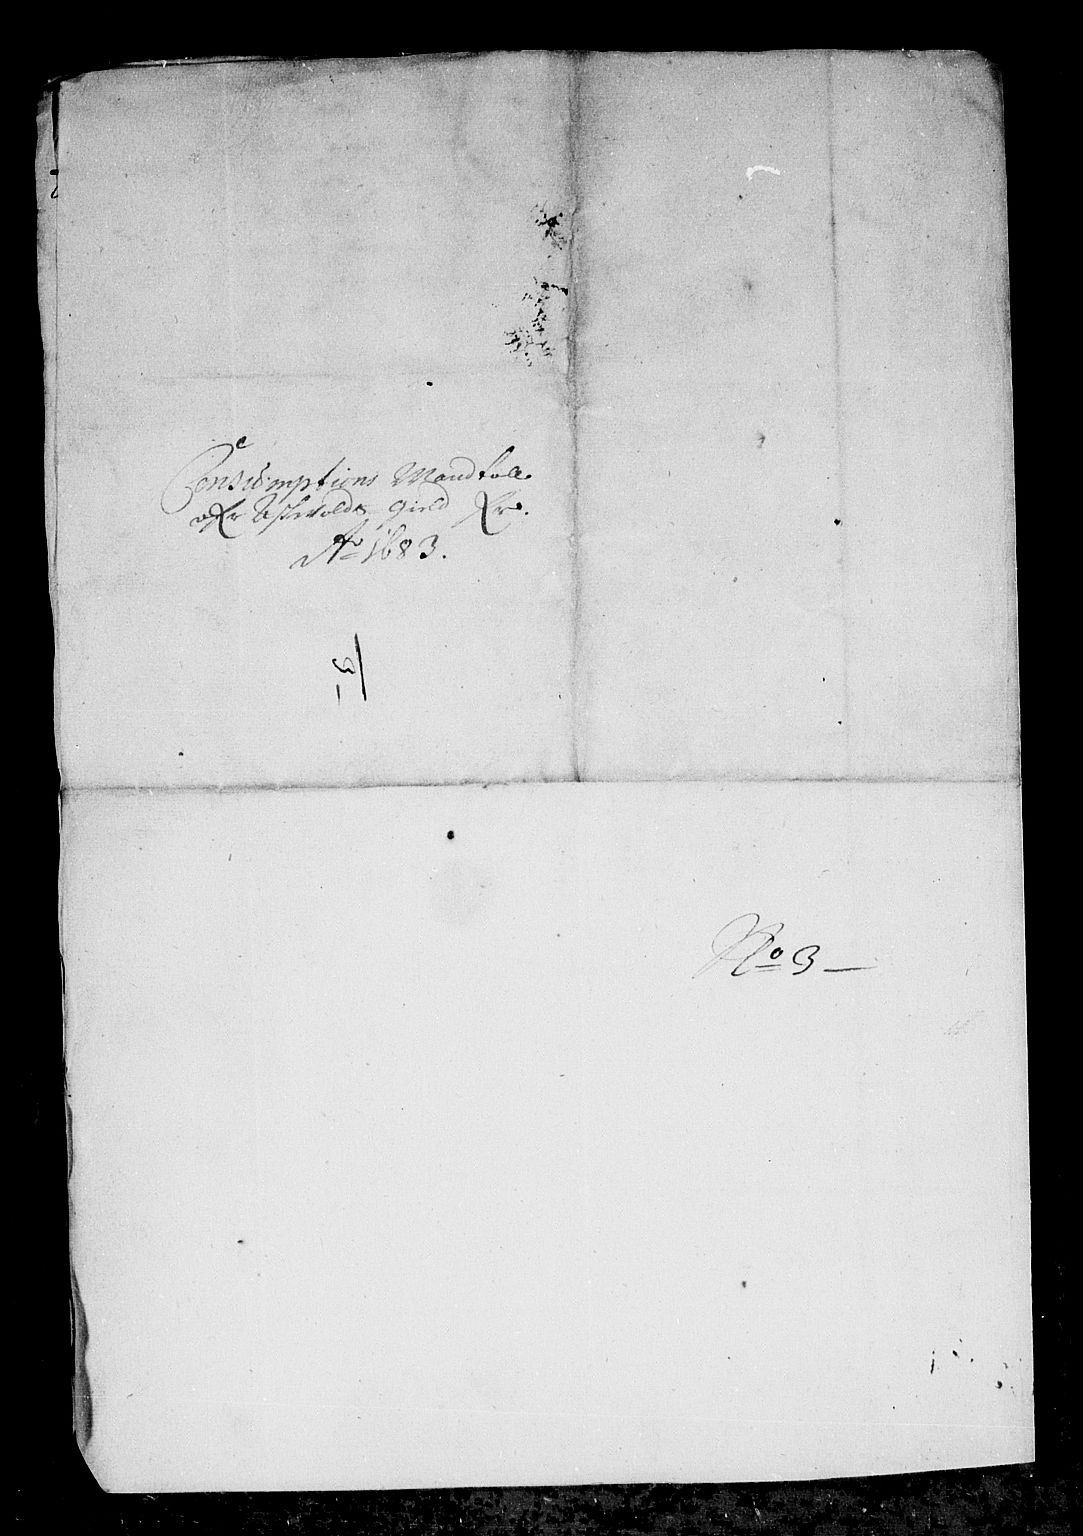 Consumptions Mandtall
ofr Astvolds gield
Ao 1683.
No 3